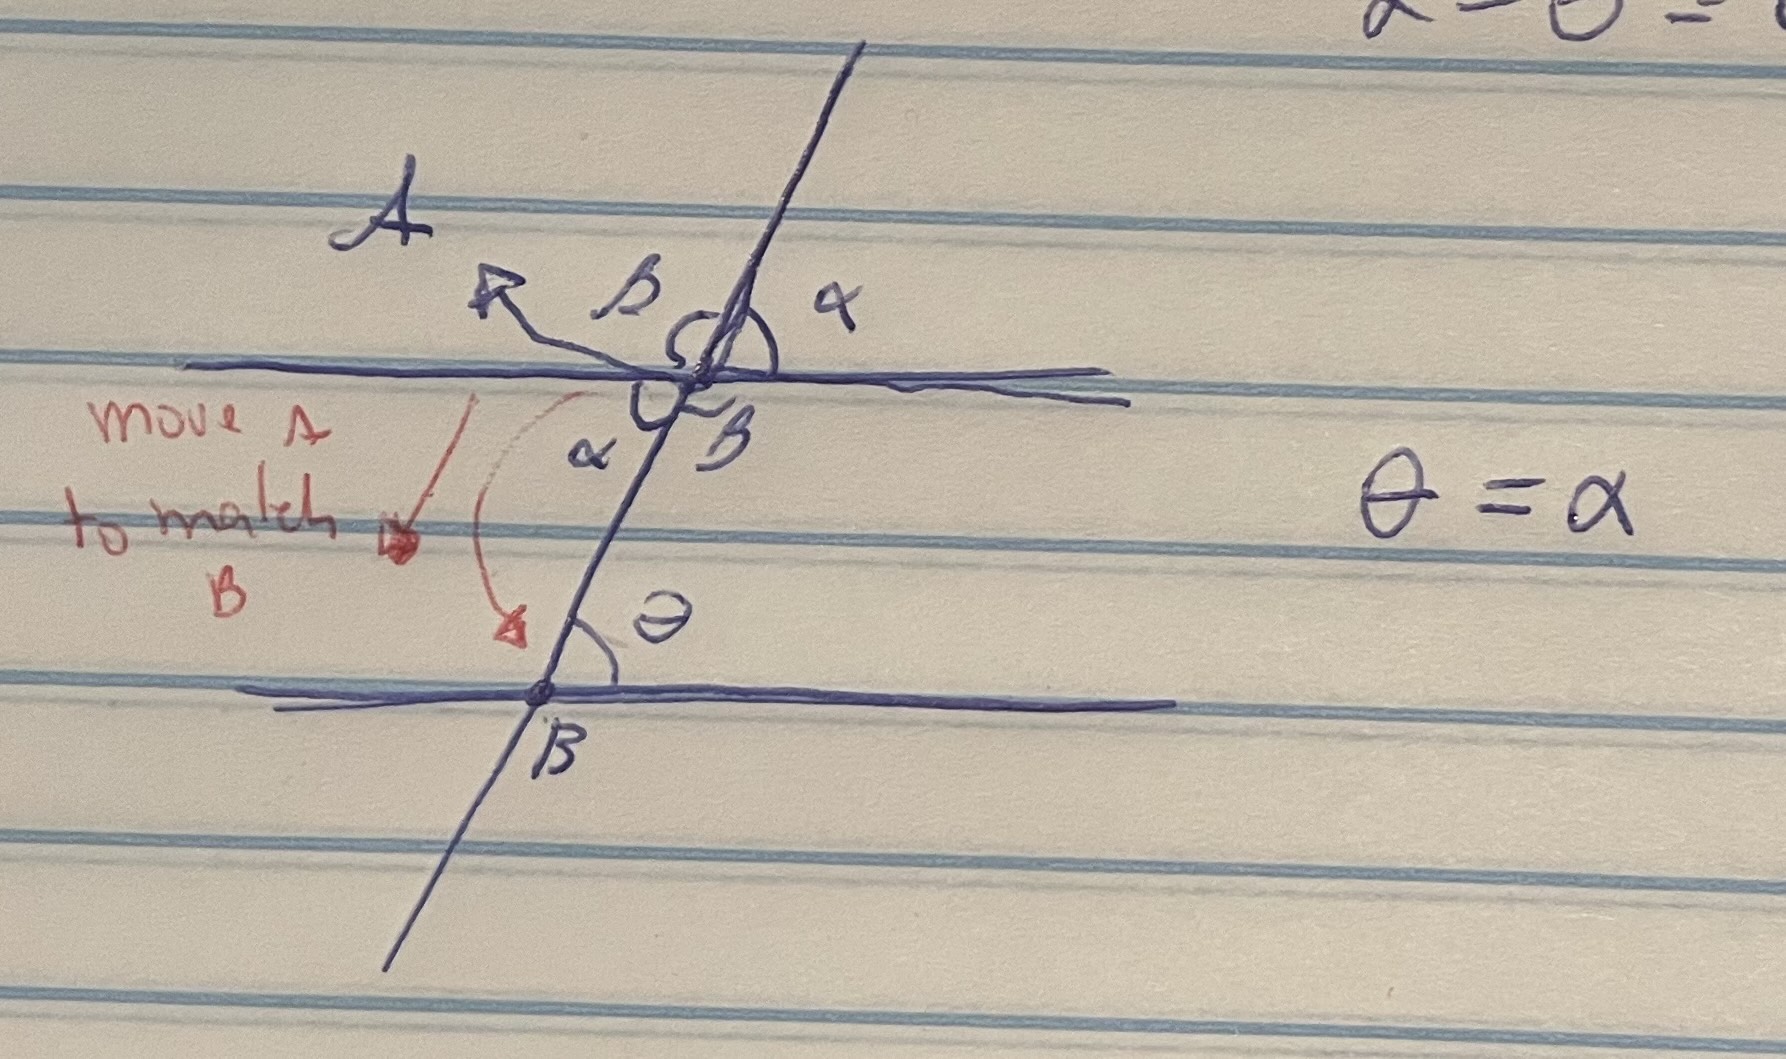 α - θ =
A
β α
move A
α β
to match
B
θ = α
θ
B